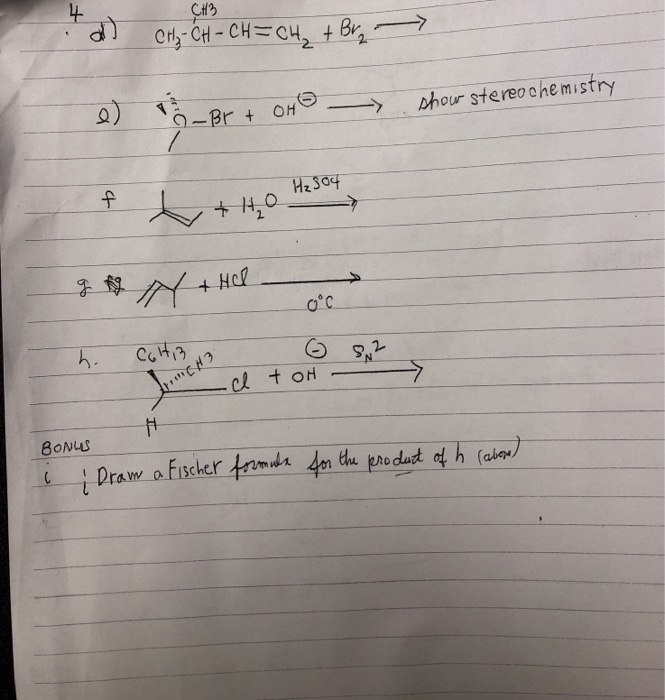 4
CH3
d) CH3-CH-CH=CH2 + Br2 →
e) -Br + OH⊖ → show stereochemistry
f + H2O H2SO4 →
g + HCl → 0°C
h. C6H13 CH3 Cl + OH ⊖ SN2 →
H
BONUS
i Draw a Fischer formula for the product of h (above)